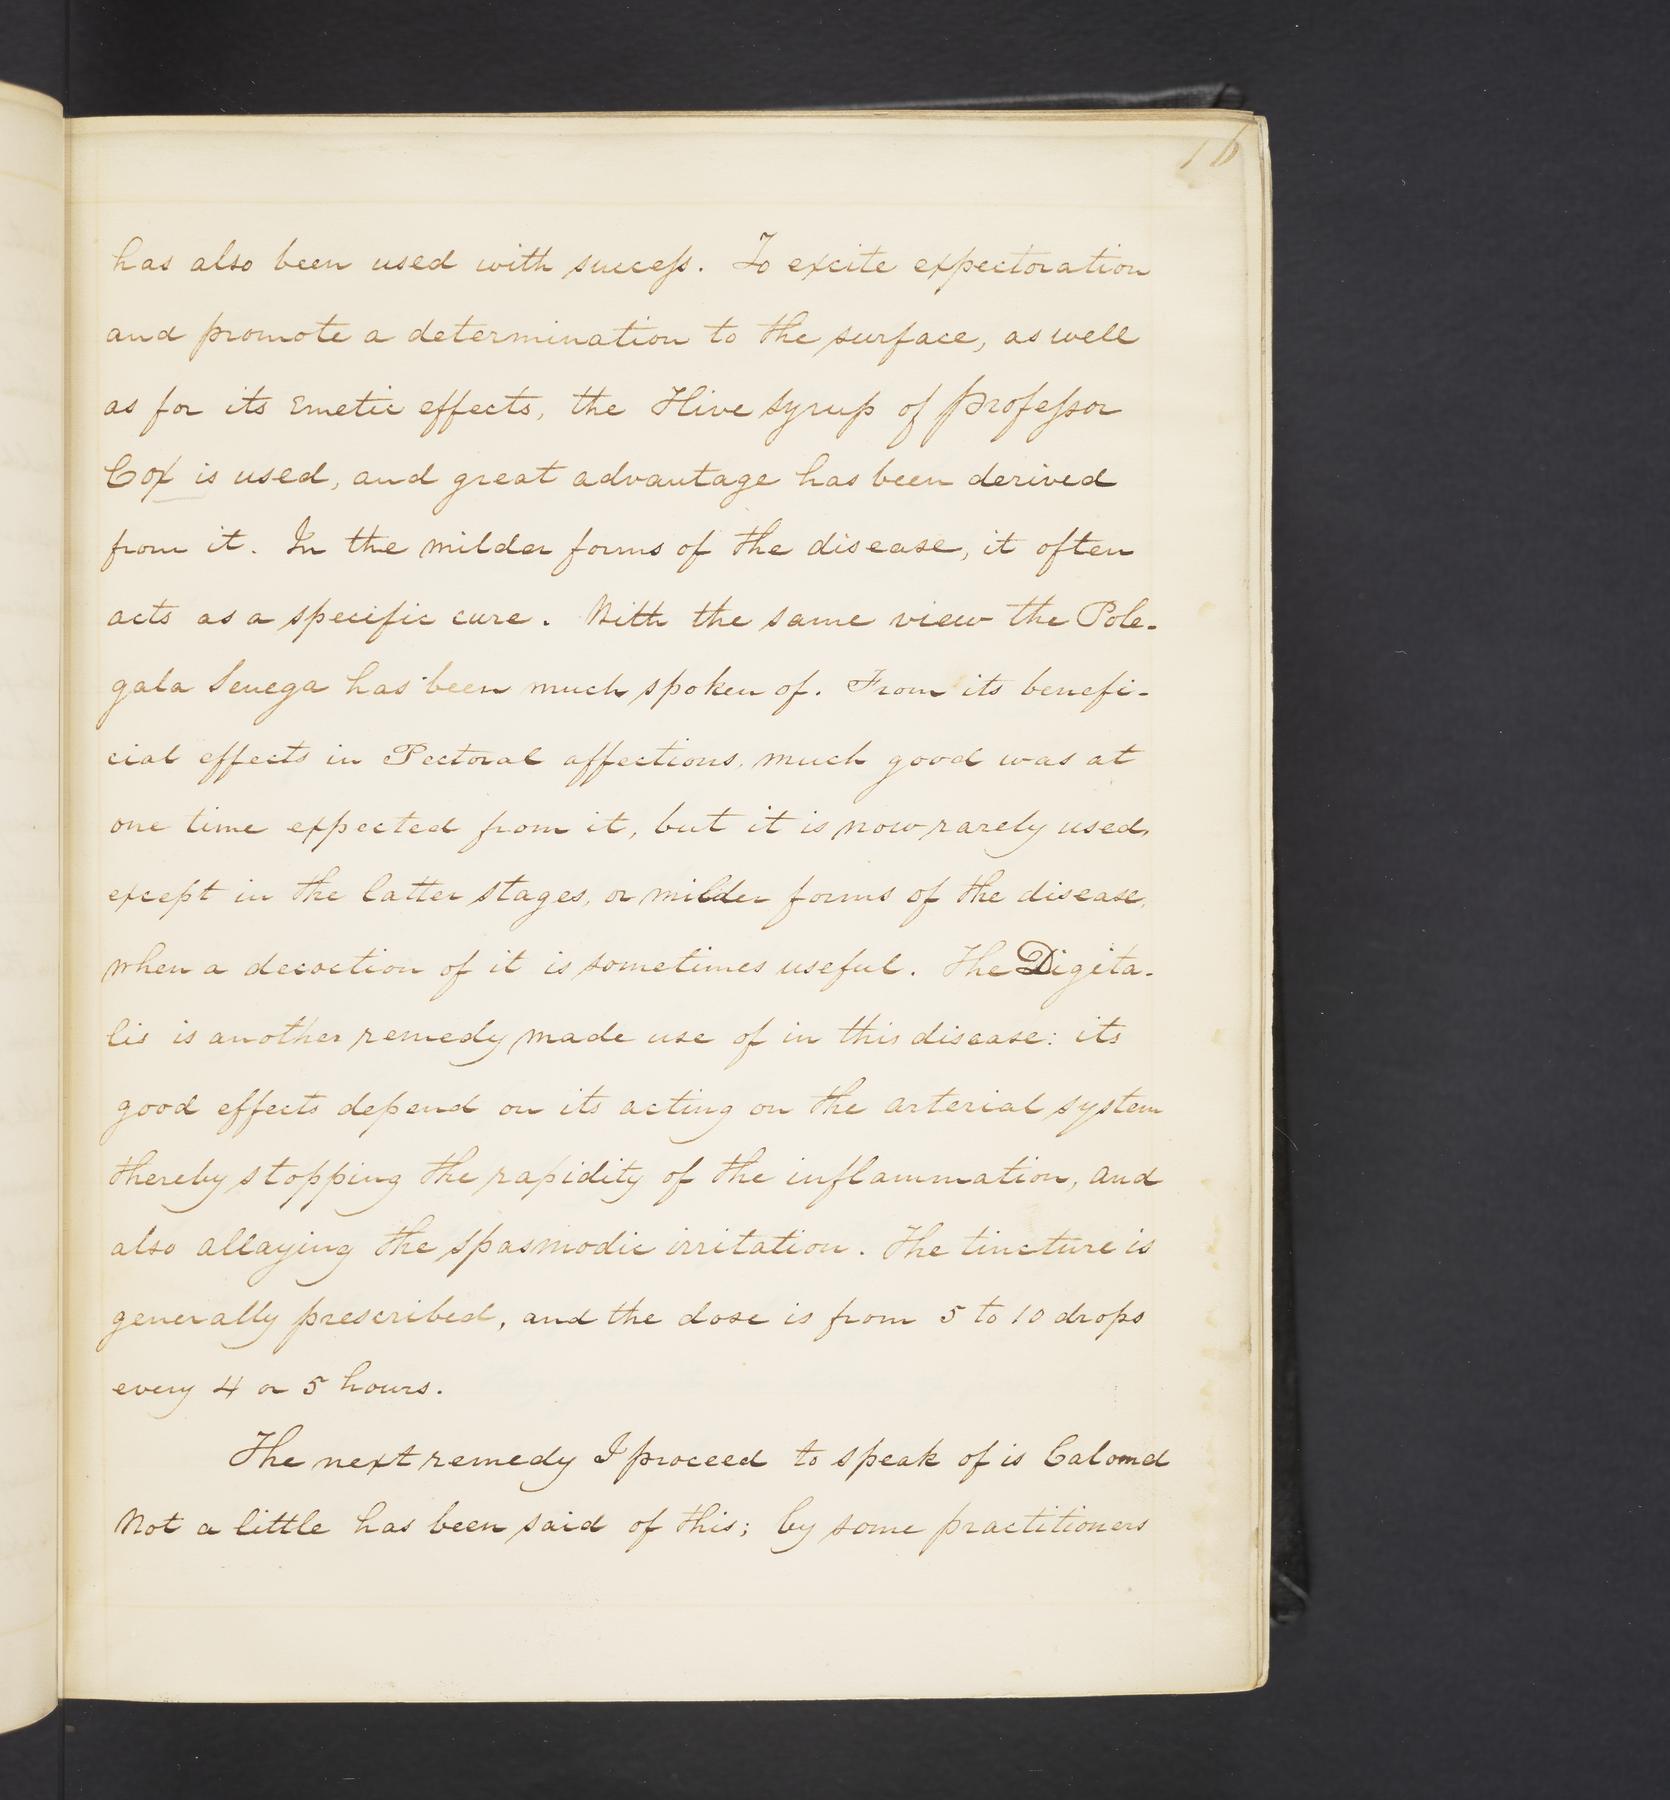 16
has also been used with success. To excite expectoration
and promote a determination to the surface, as well
as for its Emetic effects, the Hive syrup of professor
Cox is used, and great advantage has been derived
from it. In the milder forms of the disease, it often
acts as a specific cure. With the same view the Pole-
gala Senega has been much spoken of. From its benefi-
cial effects in Pectoral affections, much good was at
one time expected from it, but it is now rarely used,
except in the latter stages, or milder forms of the disease,
when a decoction of it is sometimes useful. The Digita-
lis is another remedy made use of in this disease: its
good effects depend on its acting on the arterial system
thereby stopping the rapidity of the inflammation, and
also allaying the spasmodic irritation. The tincture is
generally prescribed, and the dose is from 5 to 10 drops
every 4 or 5 hours.
The next remedy I proceed to speak of is Calomel
Not a little has been said of this; by some practitioners